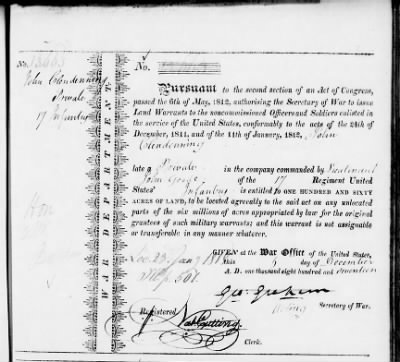 No. 13663
John Clendenning
Private
17 Infantry
WAR DEPARTMENT.
No.
Pursuant to the second section of an Act of Congress,
passed the 6th of May, 1812, authorising the Secretary of War to issue
Land Warrants to the noncommissioned Officers and Soldiers enlisted in
the service of the United States, conformably to the acts of the 24th of
December, 1811, and of the 11th of January, 1812, John
Clendenning
late a Private in the company commanded by Lieutenant
John Goode of the 17 Regiment United
States' Infantry is entitled to ONE HUNDRED AND SIXTY
ACRES OF LAND, to be located agreeably to the said act on any unlocated
parts of the six millions of acres appropriated by law for the original
grantees of such military warrants; and this warrant is not assignable
or transferable in any manner whatever.
GIVEN at the War Office of the United States,
this day of December
A. D. one thousand eight hundred and seventeen
Geo. Graham
Acting Secretary of War.
Registered
Nath Cutting
Clerk.